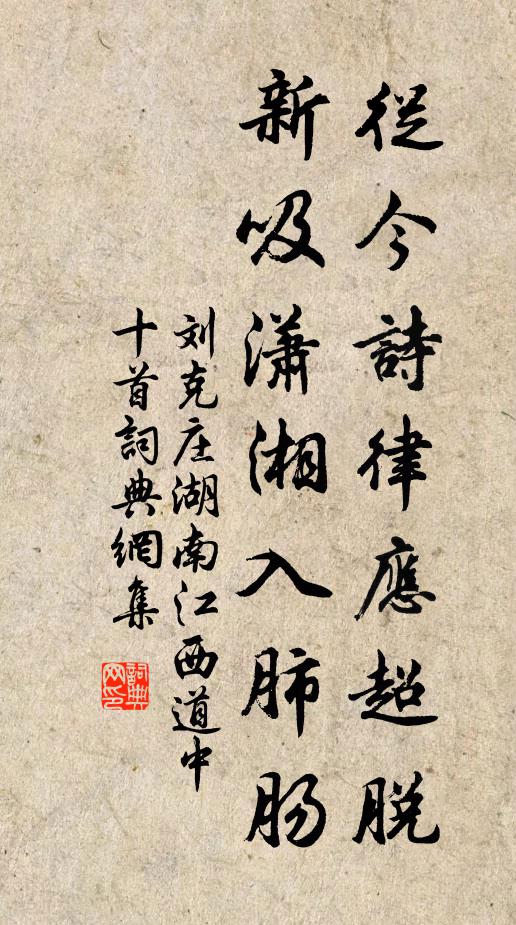 從今詩律應超脱
新吸瀟湘入肺肠
刘克庄湖南江西道中
十首詞典網集
詞典
网印